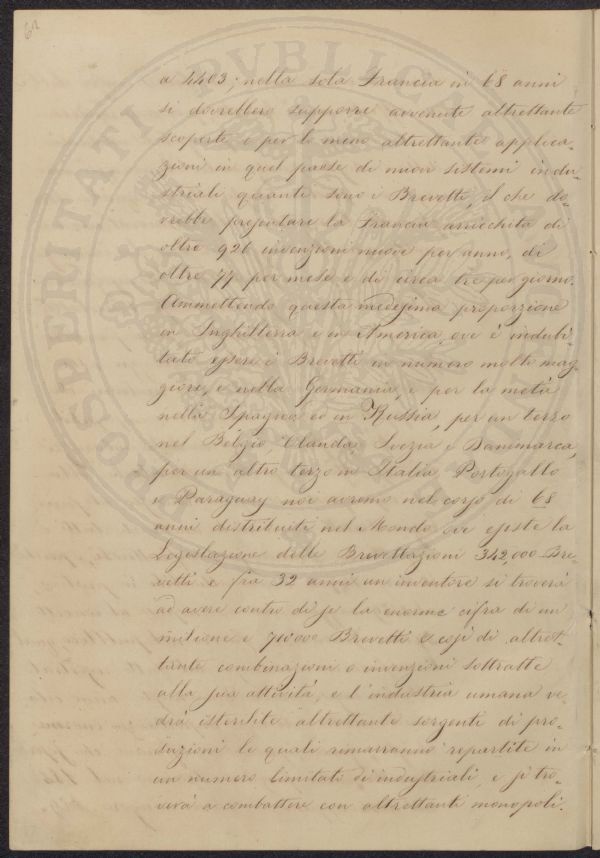 62
a 4403; nella sola Francia in 68 anni
si dovrebbero supporre avvenute altrettante
scoperte o per lo meno altrettante applica-
zioni in quel paese di nuovi sistemi indu-
striali quanti sono i Brevetti, il che do-
vrebbe presentare la Francia arricchita di
oltre 926 invenzioni nuove per anno, di
oltre 77 per mese e di circa tre per giorno.
Ammettendo questa medesima proporzione
in Inghilterra e in America, ove è indubi-
tato essere i Brevetti in numero molto mag-
giore, e nella Germania, e per la metà
nella Spagna ed in Russia, per un terzo
nel Belgio Olanda, Svezia e Danimarca,
per un altro terzo in Italia Portogallo
e Paraguay noi avremo nel corso di 68
anni distribuiti nel Mondo ove esiste la
Legislazione delle Brevettazioni 342,000 Bre-
vetti e fra 32 anni un inventore si troverà
ad avere contro di se la enorme cifra di un
milione e 710000 Brevetti e così di altret-
tante combinazioni o invenzioni sottratte
alla sua attività, e l'industria umana ve-
drà isterilite altrettante sorgenti di pro-
duzioni le quali rimarranno repartite in
un numero limitato di industriali, e si tro-
verà a combattere con altrettanti monopoli.
PROSPERITATI PVBLICAE